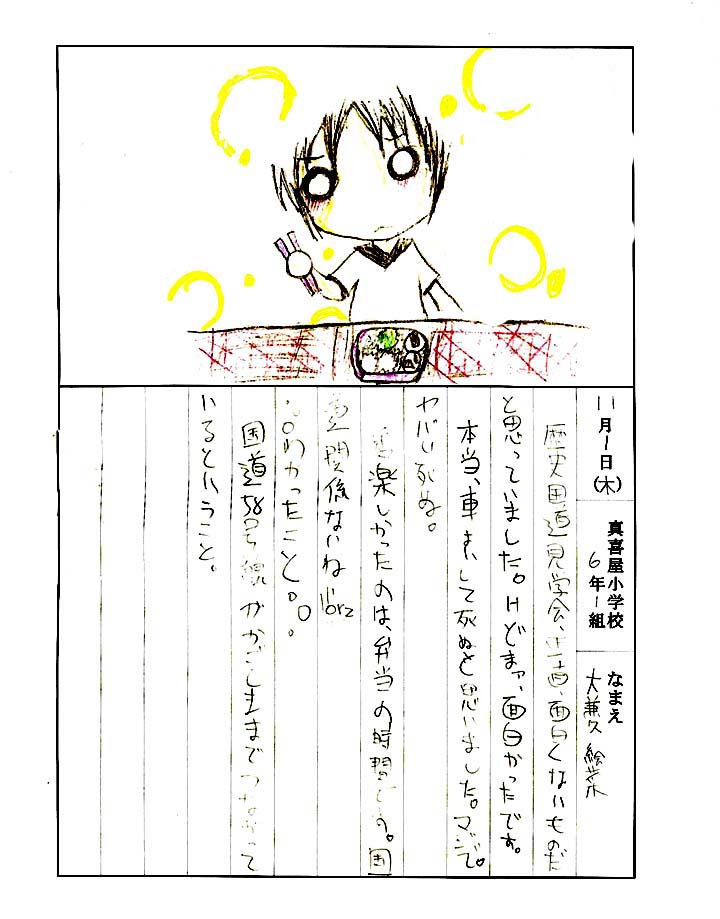 11月1日(木)
真喜屋小学校
6年1組
なまえ
大兼久 絵菜
歴史国道見学会、正直、面白くないものだ
と思っていました。けどまァ、面白かったです。
本当、車よいして死ぬと思いました。マジで。
ヤバい死ぬ。
楽しかったのは、弁当の時間です。国
道関係ないねorz
。○わかったこと○。
国道58号線がかごしままでつながって
いるということ。